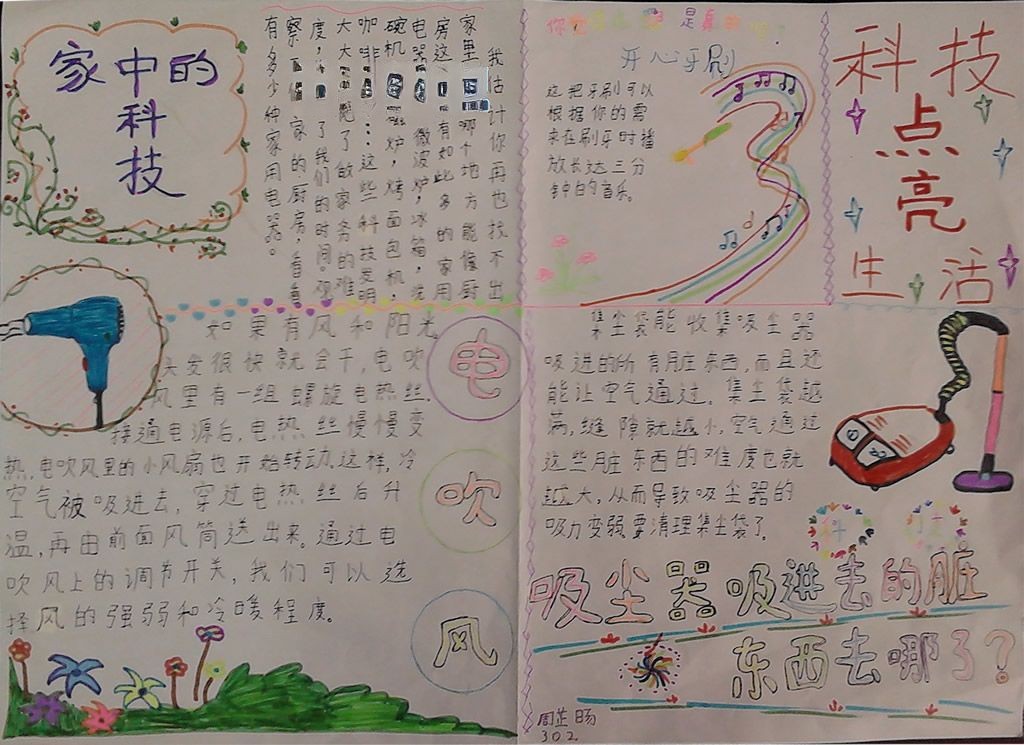 家中的
科
技
我估计你再也找不出
家里哪个地方能像厨
房这有如此多的家用
电器微波炉,冰箱,洗
碗机炉,烤面包机,
咖啡……这些科技发明
大大了做家务的难
度,了我们的时间。
察家的厨房,看看
有多少种家用电器。
是真
开心牙刷
这把牙刷可以
根据你的需
求在刷牙时播
放长达三分
钟的音乐。
科技
点
亮
生活
如果有风和阳光
头发很快就会干,电吹
风里有一组螺旋电热丝.
接通电源后,电热丝慢慢变
热,电吹风里的小风扇也开始转动.这样,冷
空气被吸进去,穿过电热丝后升
温,再由前面风筒送出来。通过电
吹风上的调节开关,我们可以选
择风的强弱和冷暖程度。
电
吹
风
集尘袋能收集吸尘器
吸进的所有用脏东西,而且还
能让空气通过。集尘袋越
满,缝隙就越小,空气通过
这些脏东西的难度也就
越大,从而导致吸尘器的
吸力变弱要清理集尘袋了。
科技
吸尘器吸进去的脏
东西去哪了?
周芷旸
302